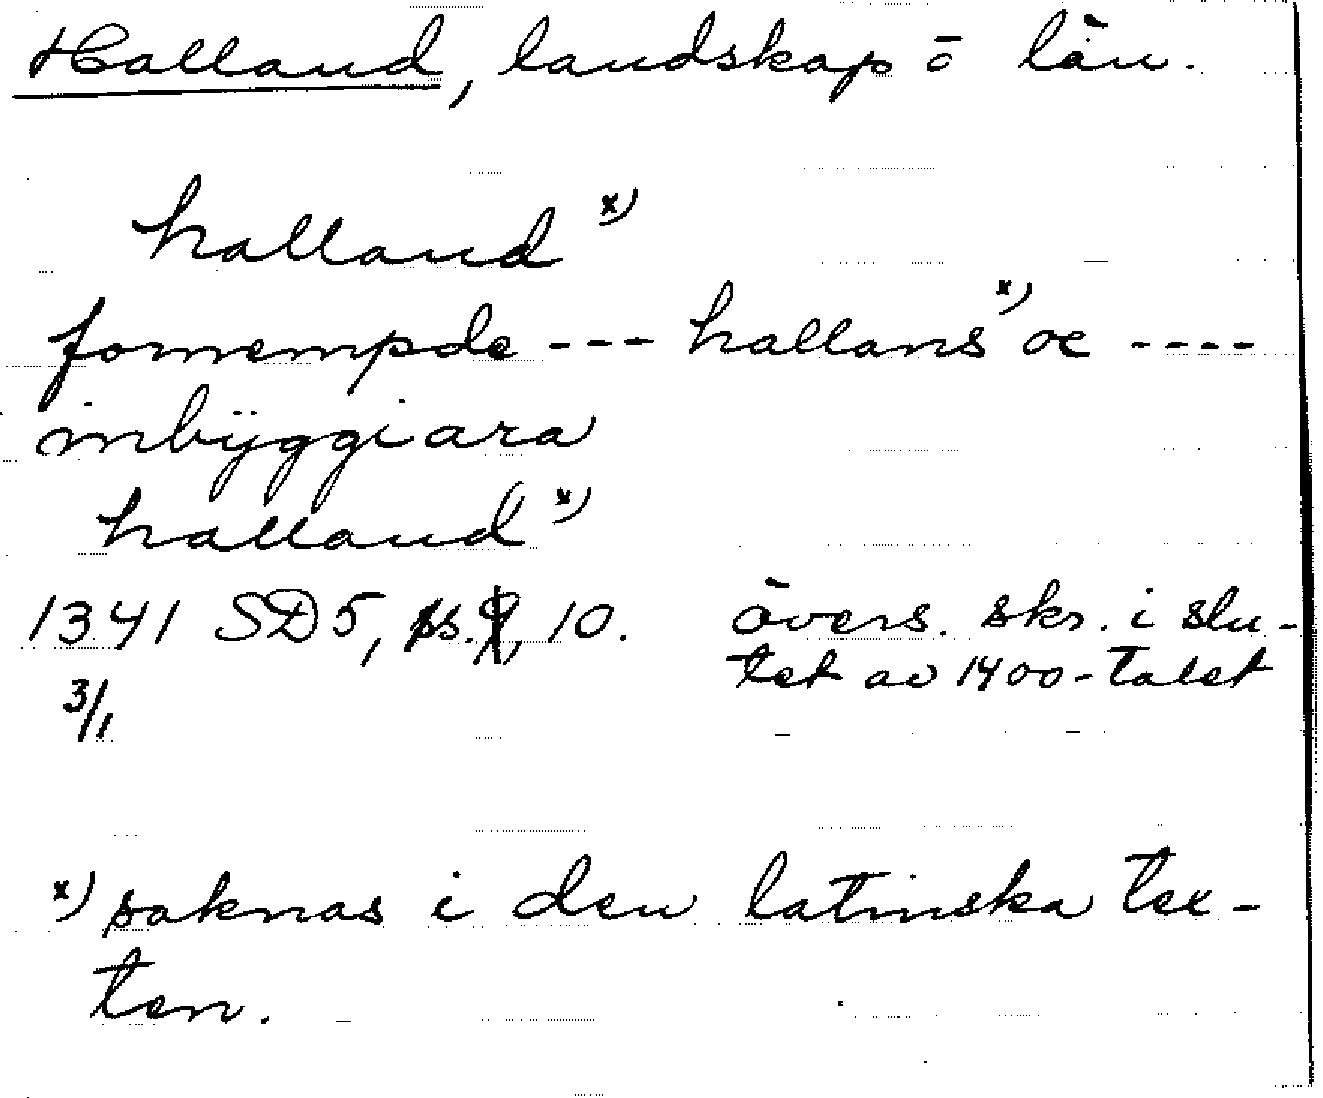 Halland, landskap o län.
halland x)
fornempde --- hallans x) oc ----
inbÿggiara
halland x)
1341 SD5, s. 10. övers. skr. i slu-
3/1 tet av 1400-talet
x) saknas i den latinska tex-
ten.